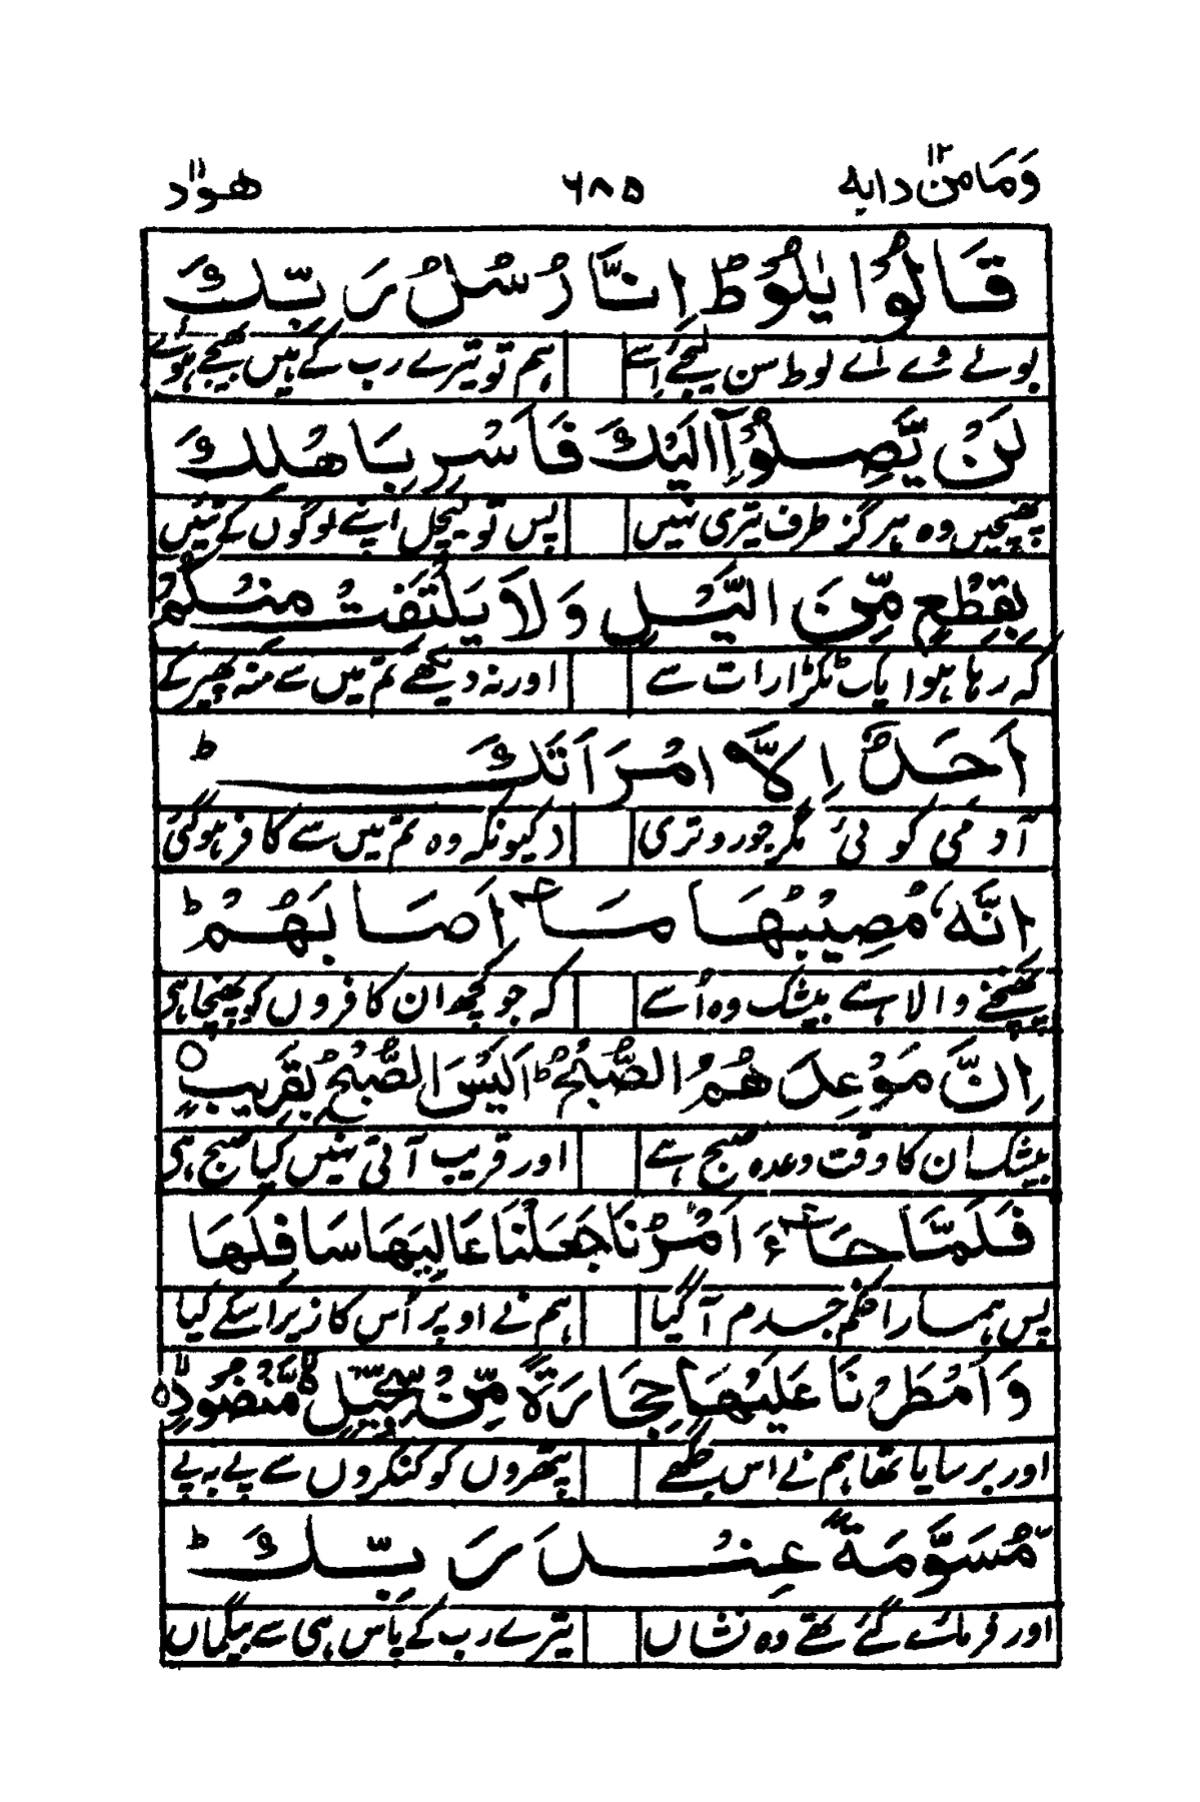 وَمَا مِنْ دابه ١٢ ٦٨٥ هود ١١
قَالُوْا يٰلُوْطُ اِنَّا رُسُلُ رَبِّكَ
بولے وے اے لوط سن لیجئے اسے ہم تو تیرے رب کے ہیں بھیجے ہوئے
لَنْ يَّصِلُوْٓا اِلَيْكَ فَاَسْرِ بِاَهْلِكَ
پہنچیں وہ ہرگز طرف تیری نہیں پس تو لیچل اپنے لوگوں کے تئیں
بِقِطْعٍ مِّنَ الَّيْلِ وَلَا يَلْتَفِتْ مِنْكُمْ
کہ رہا ہو ایک ٹکڑا رات سے اور نہ دیکھے تم میں سے منہ پھیر کے
اَحَدٌ اِلَّا امْرَاَتَكَ ؕ
آدمی کوئی مگر جورو تری (کیونکہ وہ تم میں سے کافر ہوگئی
اِنَّهٗ مُصِيْبُهَا مَآ اَصَابَهُمْ ؕ
پہنچنے والا ہے بیشک وہ اُسے کہ جو کچھ ان کافروں کو پہنچا ہی
اِنَّ مَوْعِدَهُمُ الصُّبْحُ ؕ اَلَيْسَ الصُّبْحُ بِقَرِيْبٍ ○
بیشک ان کا وقت وعدہ صبح ہے اور قریب آتی نہیں کیا صبح ہی
فَلَمَّا جَآءَ اَمْرُنَا جَعَلْنَا عَالِيَهَا سَافِلَهَا
پس ہمارا حکم جسدم آگیا ہم نے اوپر اُس کا زیر اسکے کیا
وَاَمْطَرْنَا عَلَيْهَا حِجَارَةً مِّنْ سِجِّيْلٍ ۙ مَّنْضُوْدٍ ۙ
اور برسایا تھا ہم نے اس جگھے پتھروں کو کنکروں سے پے بہ پے
مُّسَوَّمَةً عِنْدَ رَبِّكَ ؕ
اور فرمائے گئے تھے وہ نشاں تیرے رب کے پاس ہی سے بیگماں